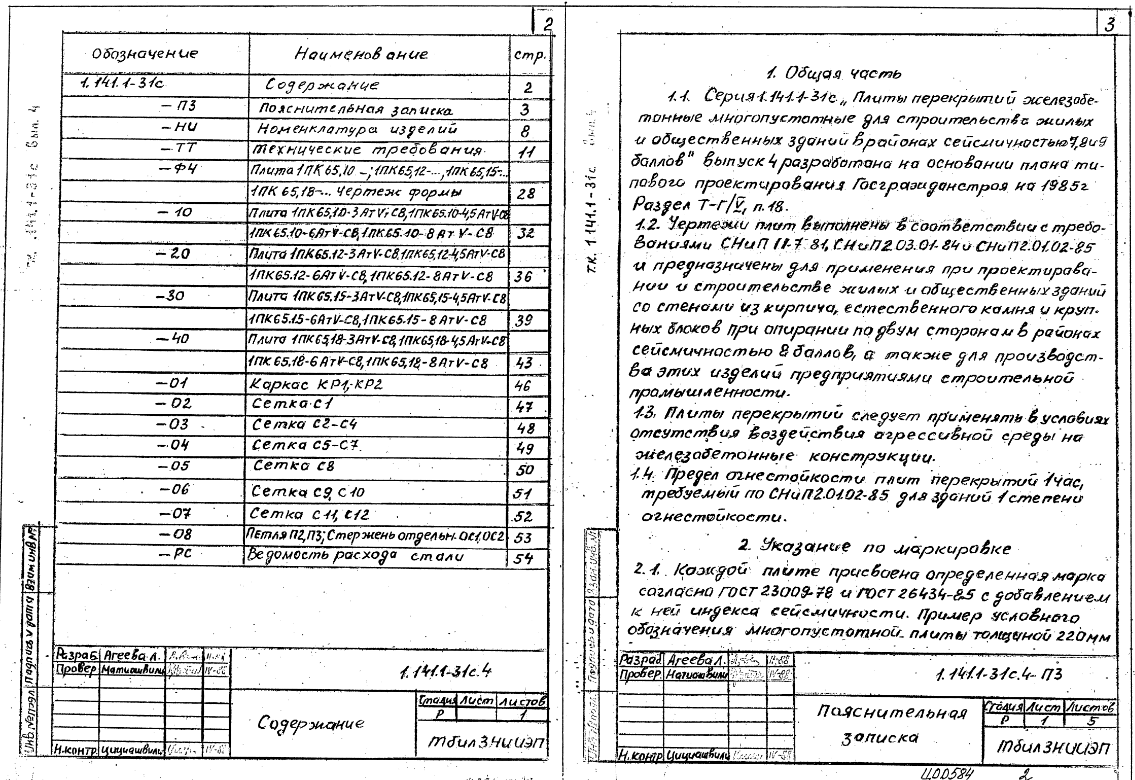 2
Обозначение Наименование стр.
1.141.1-31с Содержание 2
-ПЗ Пояснительная записка 3
-НИ Номенклатура изделий 8
-ТТ Технические требования 11
-Ф4 Плита 1ПК65.10-..;1ПК65.12-..,1ПК65.15-..
1ПК65.18-.. Чертеж формы 28
-10 Плита 1ПК65.10-3АтV-С8,1ПК65.10-4,5АтV-С8
1ПК65.10-6АтV-С8,1ПК65.10-8АтV-С8 32
-20 Плита 1ПК65.12-3АтV-С8,1ПК65.12-4,5АтV-С8
1ПК65.12-6АтV-С8,1ПК65.12-8АтV-С8 36
-30 Плита 1ПК65.15-3АтV-С8,1ПК65.15-4,5АтV-С8
1ПК65.15-6АтV-С8,1ПК65.15-8АтV-С8 39
-40 Плита 1ПК65.18-3АтV-С8,1ПК65.18-4,5АтV-С8
1ПК65.18-6АтV-С8,1ПК65.18-8АтV-С8 43
-01 Каркас КР1,КР2 46
-02 Сетка С1 47
-03 Сетка С2-С4 48
-04 Сетка С5-С7 49
-05 Сетка С8 50
-06 Сетка С9, С10 51
-07 Сетка С11, С12 52
-08 Петля П2,П3; Стержень отдельн. ОС1,ОС2 53
-РС Ведомость расхода стали 54
Т.К. 1.141.1-31с Вып. 4
Инв.№подл. Подпись и дата Взам.инв.№
Разраб. Агеева Л.
Провер. Матиашвили
Н.контр. Цициашвили
1.141.1-31с.4
Содержание
Стадия Лист Листов
Р 1
ТбилЗНИИЭП
3
1. Общая часть
1.1. Серия 1.141.1-31с „Плиты перекрытий железобе-
тонные многопустотные для строительства жилых
и общественных зданий в районах сейсмичностью 7,8 и 9
баллов" выпуск 4 разработана на основании плана ти-
пового проектирования Госгражданстроя на 1985г
Раздел Т-Г/V, п.18.
1.2. Чертежи плит выполнены в соответствии с требо-
ваниями СНиП II-7-81, СНиП 2.03.01-84 и СНиП 2.01.02-85
и предназначены для применения при проектирова-
нии и строительстве жилых и общественных зданий
со стенами из кирпича, естественного камня и круп-
ных блоков при опирании по двум сторонам в районах
сейсмичностью 8 баллов, а также для производст-
ва этих изделий предприятиями строительной
промышленности.
1.3. Плиты перекрытий следует применять в условиях
отсутствия воздействия агрессивной среды на
железобетонные конструкции.
1.4. Предел огнестойкости плит перекрытий 1 час,
требуемый по СНиП 2.01.02-85 для зданий 1 степени
огнестойкости.
2. Указание по маркировке
2.1. Каждой плите присвоена определенная марка
согласно ГОСТ 23009-78 и ГОСТ 26434-85 с добавлением
к ней индекса сейсмичности. Пример условного
обозначения многопустотной плиты толщиной 220мм
Т.К. 1.141.1-31с. Вып. 4
Разраб. Агеева Л.
Провер. Матиашвили
Н.контр. Цициашвили
1.141.1-31с.4-ПЗ
Пояснительная
записка
Стадия Лист Листов
Р 1 5
ТбилЗНИИЭП
Ц00584 2